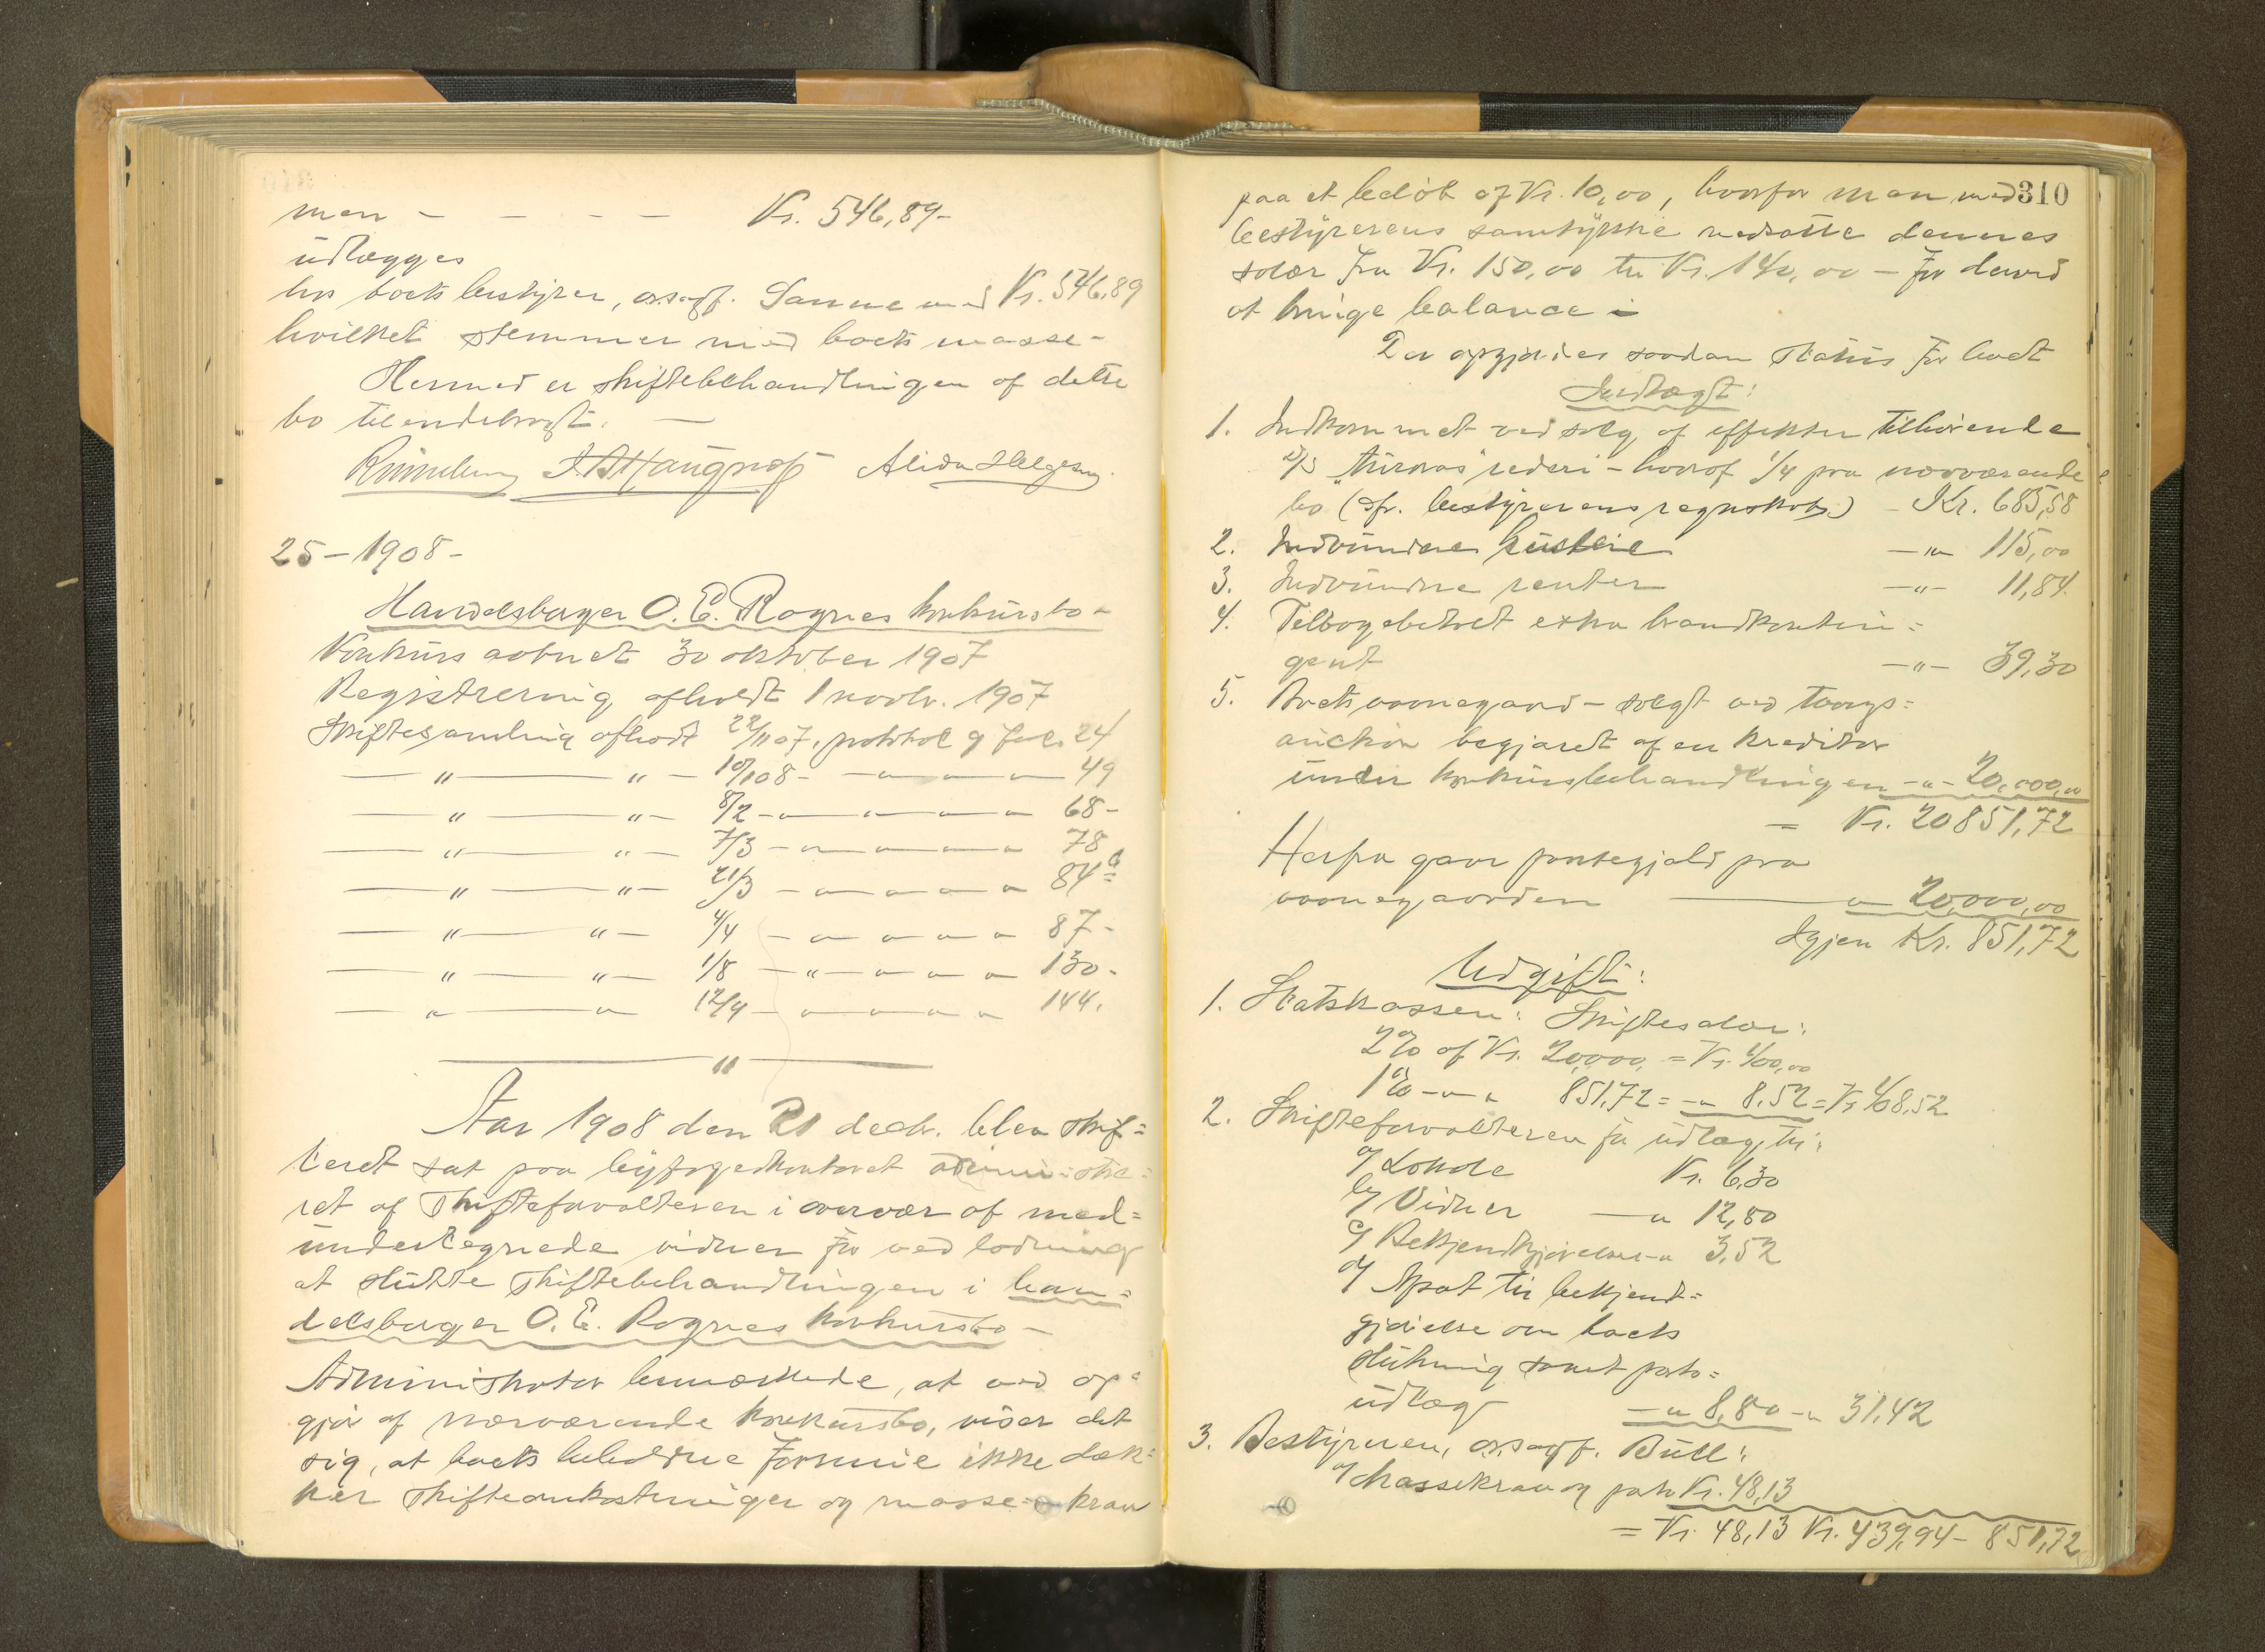 men - - - - Kr. 546,89-
udlægges
hos boets bestyrer, o.r.sagf. Sanne med Kr. 546,89
hvilket stemmer med boets masse-
Hermed er skiftebehandlingen af dette
bo tilendebragt. -
Alida Helgesen.
25-1908-
Handelsborger O. E. Rognes konkursbo-
Konkurs aabnet 30 oktober 1907
Registrering afholdt 1 novbr. 1907
Skiftesamling afholdt 22/11 07, protokol 9 fol. 24
— " — " — 10/1 08 - — " — " — " — 49
— " — " — 8/2 - " — " — " — " 68-
— " — " — 7/3 - " — " — " — " 78
— " — " — 21/3 - " — " — " — " 84b
— " — " — 4/4 - " — " — " — " 87-
— " — " — 1/8 - " — " — " — " 130-
— " — " 12/9 - " — " — " — " 144.
— " —
Aar 1908 den 21 decbr. blev skif=
teret sat paa byfogedkontoret administre=
ret af skifteforvalteren i overvær af med=
undertegnede vidner for ved lodning
at slutte skiftebehandlingen i han=
delsborger O. E. Rognes konkursbo-
Administrator bemærkede, at ved op=
gjør af nærværende konkursbo, viser det
sig, at boets beholdne formue ikke dæk=
ker skifteomkostninger og masse- krav
310
paa et beløb af Kr. 10,00, hvorfor man med
bestyrerens samtykke nedsatte dennes
salær fra Kr. 150,00 til Kr. 140,00 - for derved
at bringe balance i
Der opgjørdes saadan status for boet
Indtægt:
1. Indkommet ved salg af effekter tilhørende
rederi - hvoraf 1/4 paa nærværende
bo (cfr. bestyrerens regnskab) - Kr. 685,58
2. Indvundne husleie -"- 115,00
3. Indvundne renter -"- 11,84
4. Tilbagebetalt extra brandkontin=
gent -"- 39,30
5. Boets vaanegaard - solgt ved tvangs=
auktion begjæret af en kreditor
under konkursbehandlingen -"- 20,000,00
= Kr. 20851,72
Herfra gaar pantegjæld paa
vaanegaarden — " 20,000,00
Igjen Kr. 851,72
Udgift:
1. Statskassen: Skiftesalær:
2% af Kr. 20,000, = Kr. 400,00
1% - " - 851,72 = -" 8,52 = Kr. 408,52
2. Skifteforvalteren for udlæg til:
a/ Lokale Kr. 6,30
b/ Vidner — " 12,80
c/ Bekjendtgjørelser -" 3,52
d/ Afsat til bekjendt=
gjørelse om boets
slutning samt porto=
udlæg -" 8,80 -" 31,42
3. Bestyreren, o.r.sagf. Bull:
a/ Massekrav og porto Kr. 48,13
= Kr. 48,13 Kr. 439,94 - 851,72